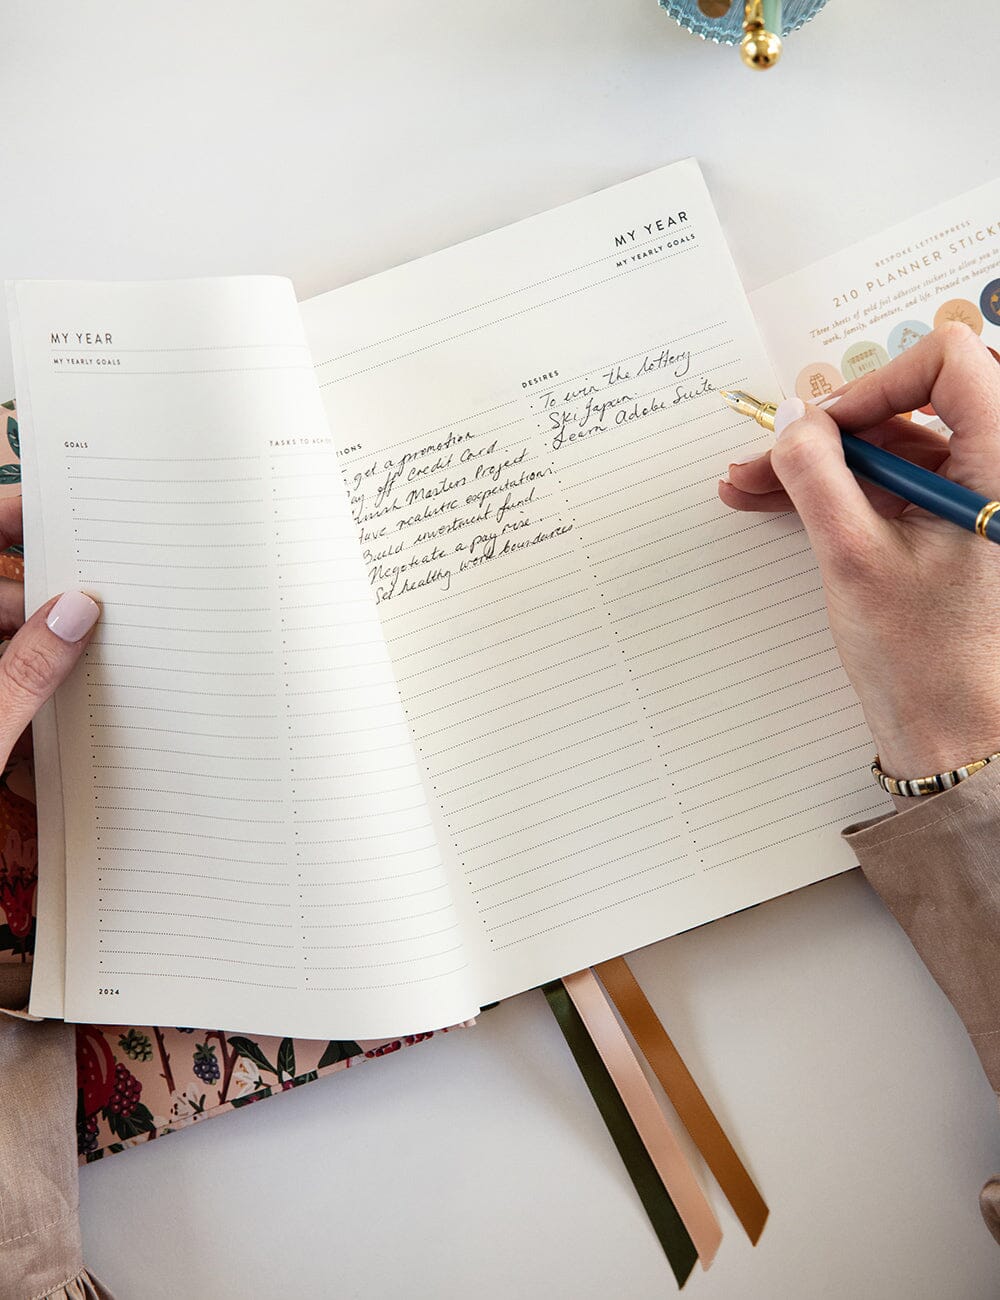 MY YEAR
MY YEARLY GOALS
GOALS
TASKS TO
2024
MY YEAR
MY YEARLY GOALS
IONS
get a promotion
ay off Credit Card.
Masters Project
Have realistic expectations.
Build investment fund
Negotiate a pay rise...
Set healthy work boundaries.
DESIRES
To win the lottery
Ski Japan.
Learn Adobe Suite
BESPOKE LETTERPRESS
210 PLANNER STICKE
Three sheets of gold foil adhesive stickers to allow you to
work, family, adventure, and life. Printed on heavyw
NOTES